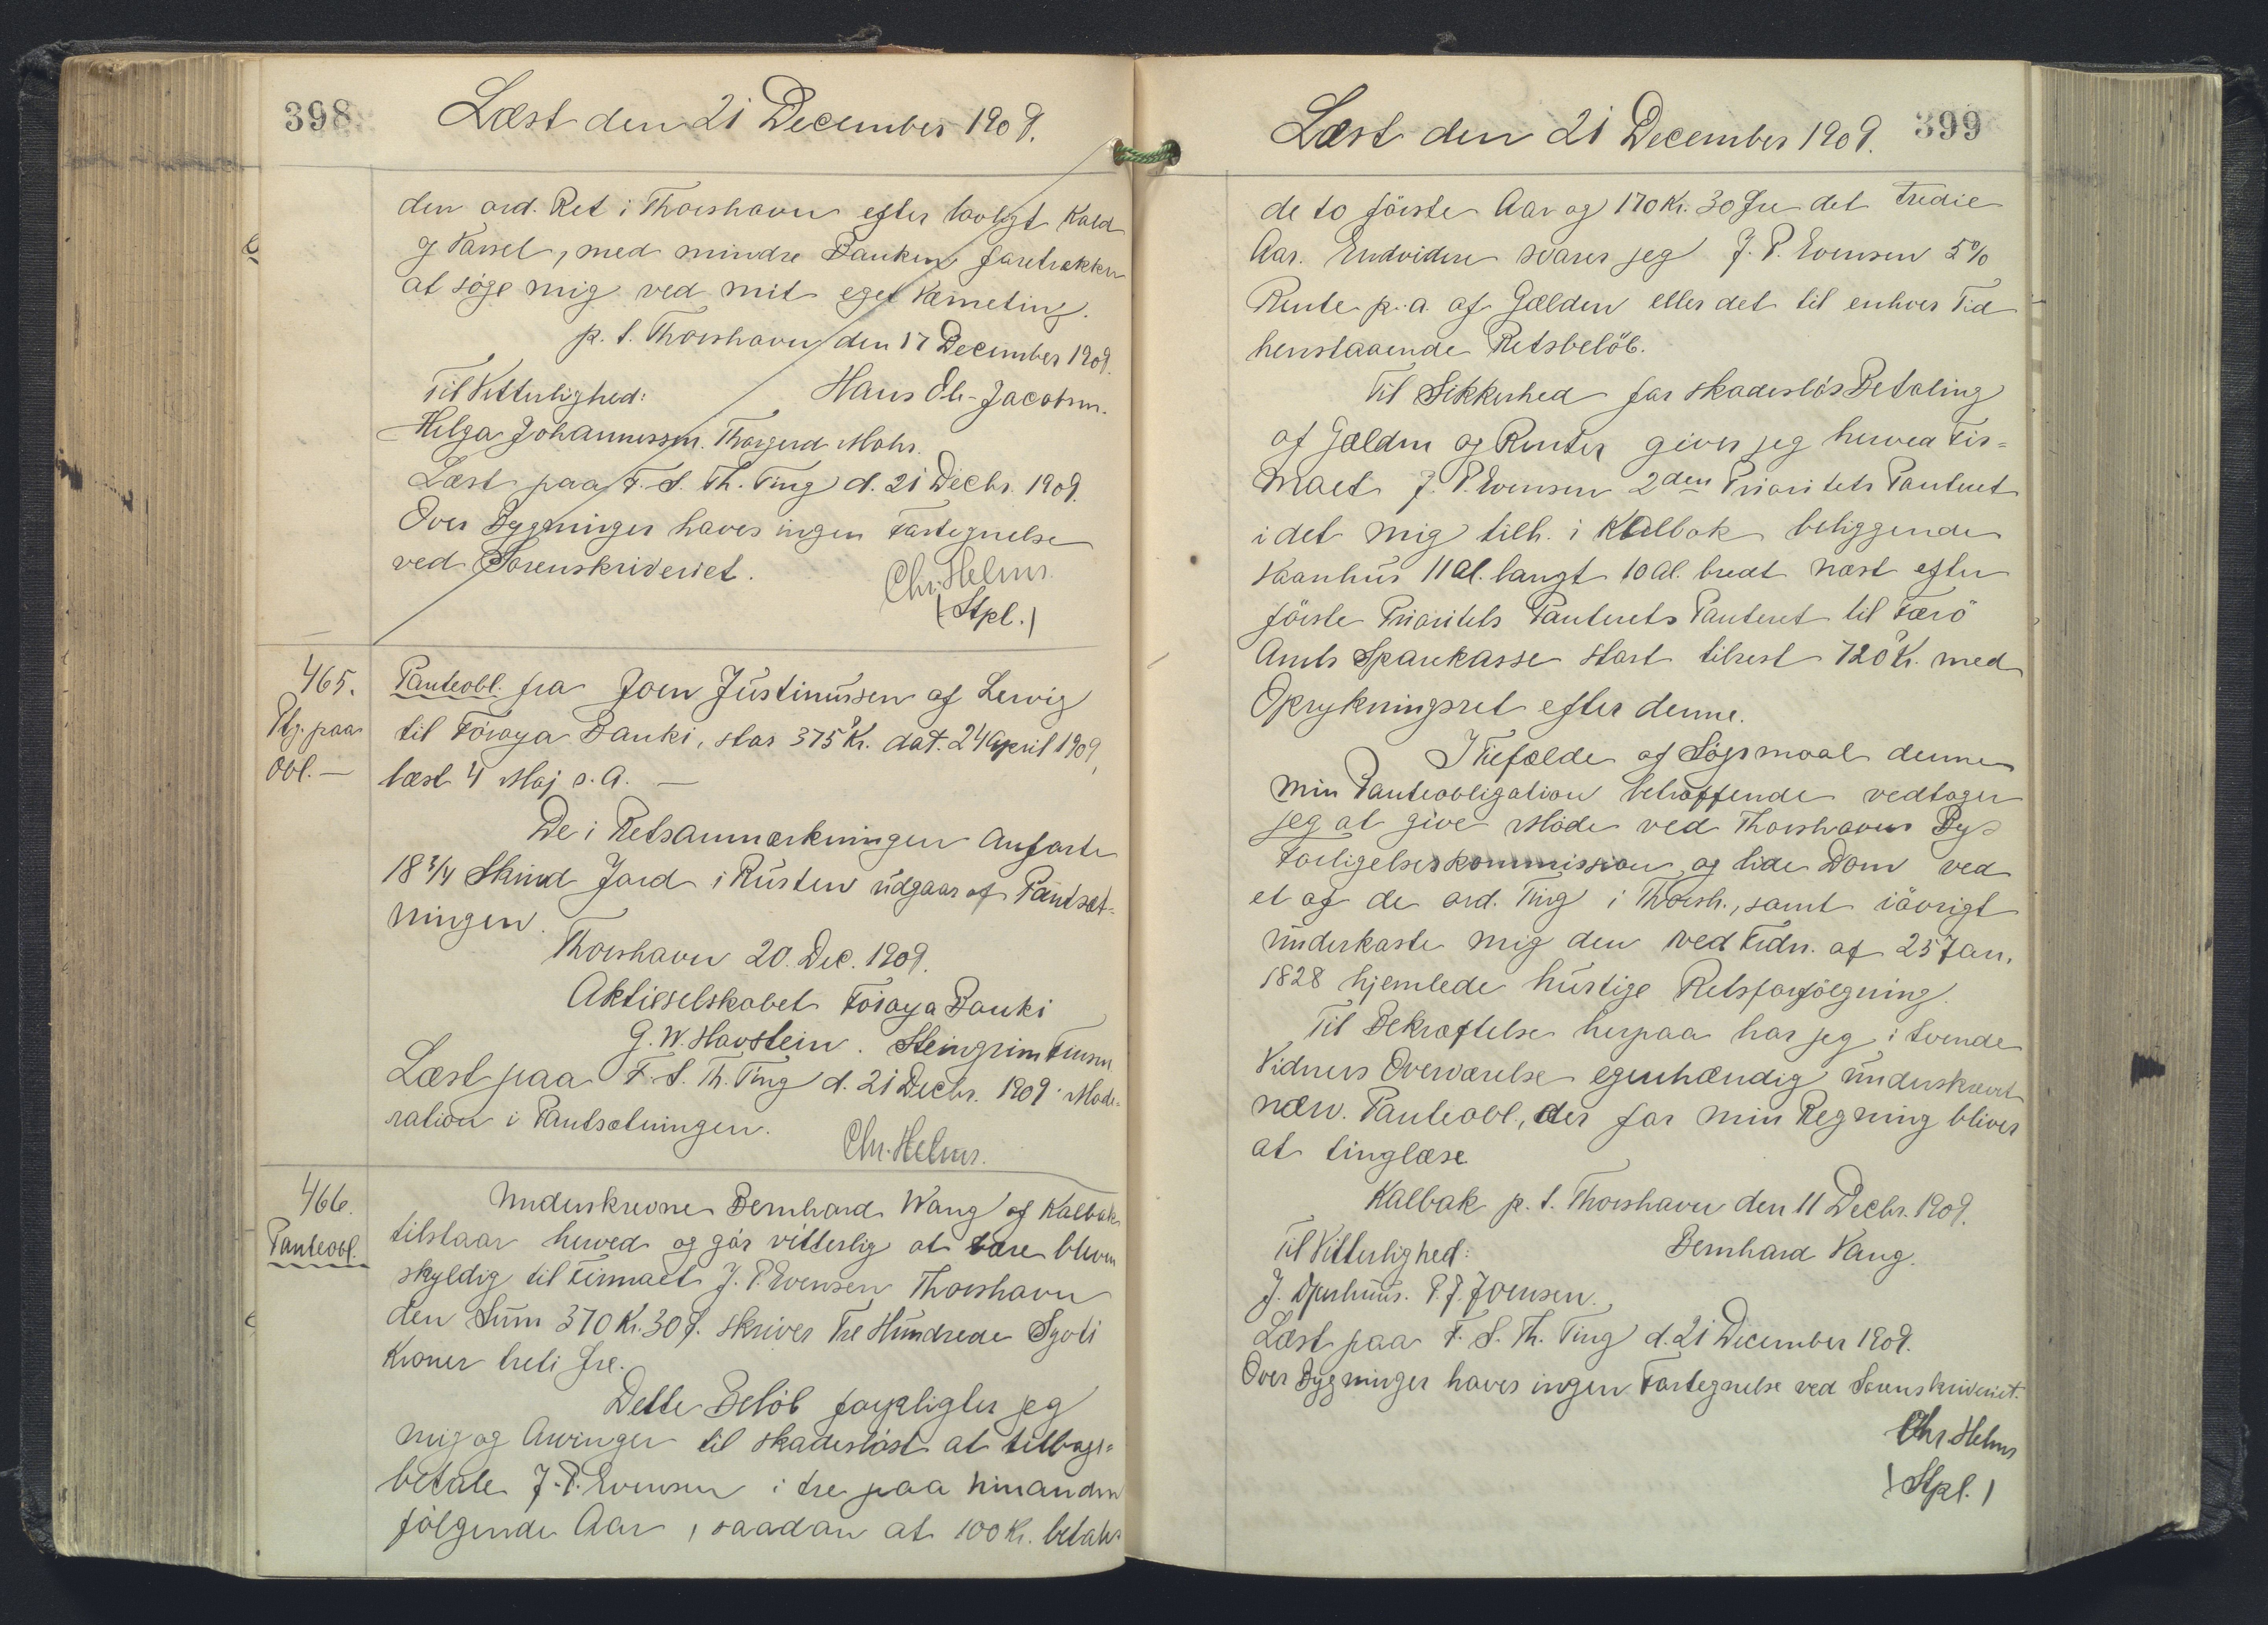 398
Læst den 21 December 1909.
den ord. Ret i Thorshavn efter lovligt Kald
og Varsel, med mindre Banken foretrækker
at søge mig ved mit eget Værneting.
p. t. Thorshavn den 17 December 1909.
Til Vitterlighed: Hans Ol-Jacobsen.
Helga Johannessen. Thorgerd Mohr.
Læst paa F. S. Th. Ting d. 21 Decbr. 1909.
Over Bygninger haves ingen Fortegnelse
ved Sorenskriveriet.
Chr. Helms.
(Stpl.)
465. Panteobl. fra Joen Justinussen af Lervig
Ptg. paa til Föroya Banki, stor 375 Kr. dat. 24 April 1909,
Obl. — læst 4 Maj s. A. —
De i Retsanmærkningen anførte
18 3/4 Skind Jord i Rusten udgaar af Pantsæt-
ningen.
Thorshavn 20. Dec. 1909.
Aktieselskabet Föroya Banki
G. W. Havstein. Steingrim
Læst paa F. S. Th. Ting d. 21 Decbr. 1909: Mode-
ration i Pantsætningen.
Chr. Helms.
466. Underskrevne Bernhard Wang af Kalbak
Panteobl. tilstaar herved og gör vitterlig at være bleven
skyldig til Firmaet J. P. Evensen Thorshavn
den Sum 370 Kr. 30 Ø. skriver Tre Hundrede Syvti
Kroner treti Øre.
Dette Belöb forpligter jeg
mig og Arvinger til skadeslöst at tilbage-
betale J. P. Evensen i tre paa hinanden
fölgende Aar, saadan at 100 Kr. betales
399
Læst den 21 December 1909.
de to förste Aar og 170 Kr. 30 Øre det tredie
Aar. Endvidere svarer jeg J. P. Evensen 5%
Rente p. a. af Gælden eller det til enhver Tid
henstaaende Restbelöb.
Til Sikkerhed for skadeslös Betaling
af Gælden og Renter giver jeg herved Fir-
maet J. P. Evensen 2den Prioritets Panteret
i det mig tilh. i Kalbak beliggende
Vaanhus 11 Al. langt 10 Al. bredt næst efter
förste Prioritets Panterets Panteret til Færö
Amts Sparekasse stort tilrest 720 Kr. med
Oprykningsret efter denne.
I Tilfælde af Søgsmaal denne
min Panteobligation betræffende vedtager
jeg at give Möde ved Thorshavns By-
Forligelseskommission og lide Dom ved
et af de ord. Ting i Thorsh., samt iövrigt
underkaste mig den ved Frdn. af 25 Jan.
1828 hjemlede hurtige Retsforfölgning.
Til Bekræftelse herpaa har jeg i tvende
Vidners Overværelse egenhændig underskrevet
nærv. Panteobl., der for min Regning bliver
at tinglæse
Kalbak p. t. Thorshavn den 11 Decbr. 1909.
Til Vitterlighed: Bernhard Vang.
J. P. J. Joensen.
Læst paa F. S. Th. Ting d. 21 December 1909.
Over Bygninger haves ingen Fortegnelse ved Sorenskriveriet.
Chr. Helms
(Stpl.)